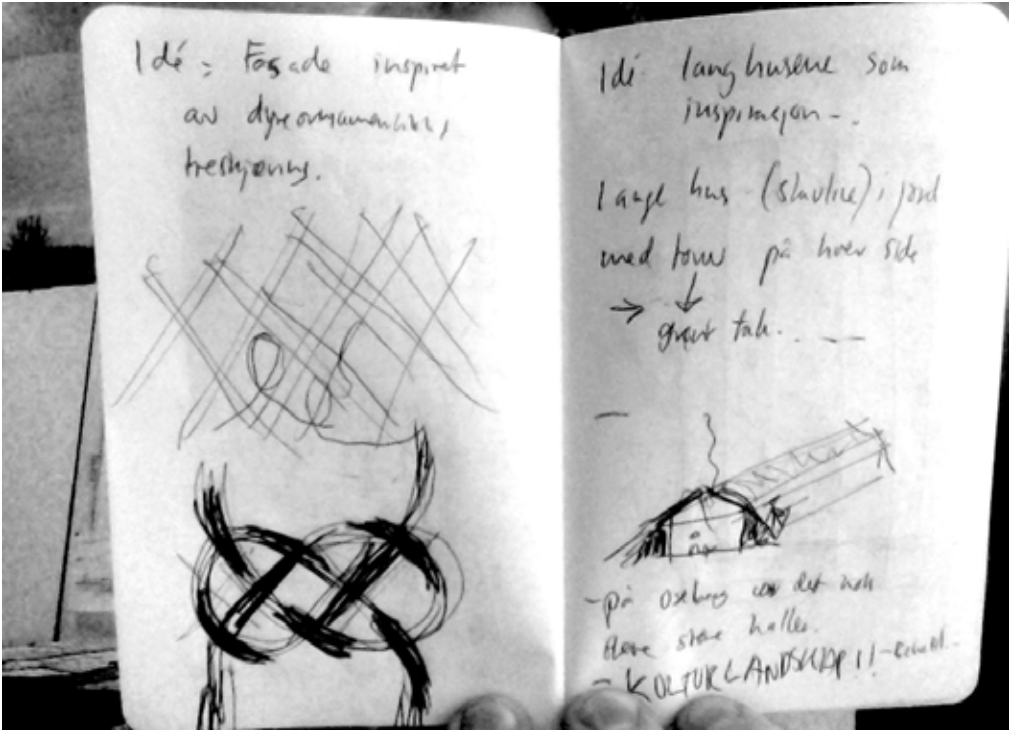 Idé: Fasade inspirert
av dyreornamentikk,
treskjæring.
Idé langhusene som
inspirasjon.
Lange hus i jord
med på hver side
→ ↓
tak.
- på Oseberg var det nok
flere store haller.
- KULTURLANDSKAP!!